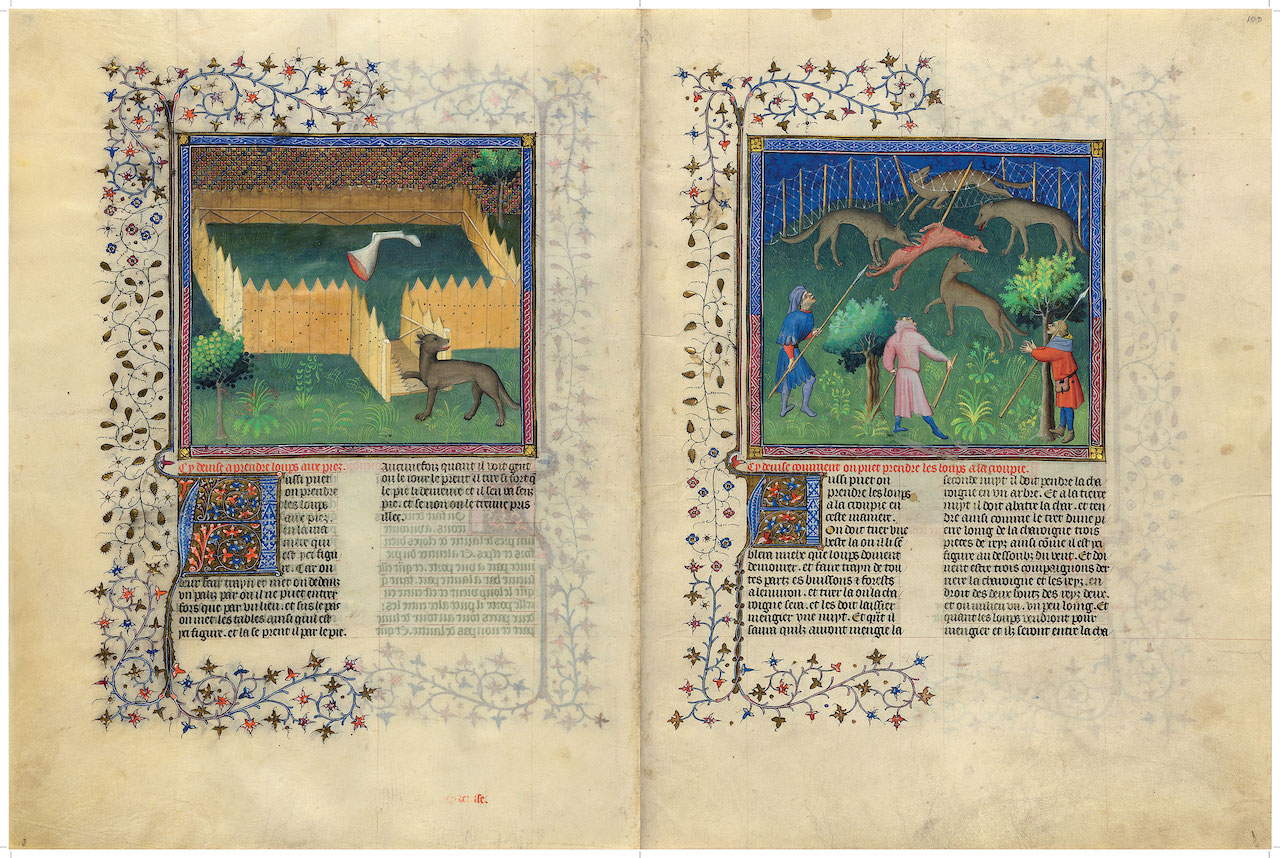 Cy deuise a prendre loups aux piez.
Aussi puet
on prendre
les loups
aux piez.
en la ma
niere qui
est ycy figu
ree. Car on
leur fait trayn et met on dedenz
vn palz par ou il ne puet entrer
fors que par vn lieu. et sus le pas
on met les tables ainsi quil est
ya figure. et la se prent il par le pie.
Aucunefoiz quant il voit gent
ou le iour le prent il tire si fort q
le pie li demeure et il sen va senz
pie. et se non on le treuue pris
illec.
100
Cy deuise comment on puet prendre les loups a la croupie.
Aussi puet on
prendre les loups
a la croupie en
ceste maniere.
On doit tuer vne
beste la ou il se
blera mielx que loups doiuent
demourer. et faire trayn de tou
tes pars es buissons z forestz
a lenuiron. et tirer la ou la cha
roigne sera. et les doit laissier
mengier vne nuyt. Et quant il
saura quilz auront mengie la
seconde nuyt il doit pendre la cha
roigne en vn arbre. Et a la tierce
nuyt il doit abatre la char. et ten
dre ainsi comme le tret dune pi
erre loing de la charoigne trois
pieces de reyz ainsi come il est ya
figure au dessoubz du vent. Et doi
uent estre trois compaignons der
riere la charoigne et les reyz. en
droit des deux boutz des reyz deux.
et ou milieu vn. vn peu loing. Et
quant les loups vendront pour
mengier et ilz seront entre la cha